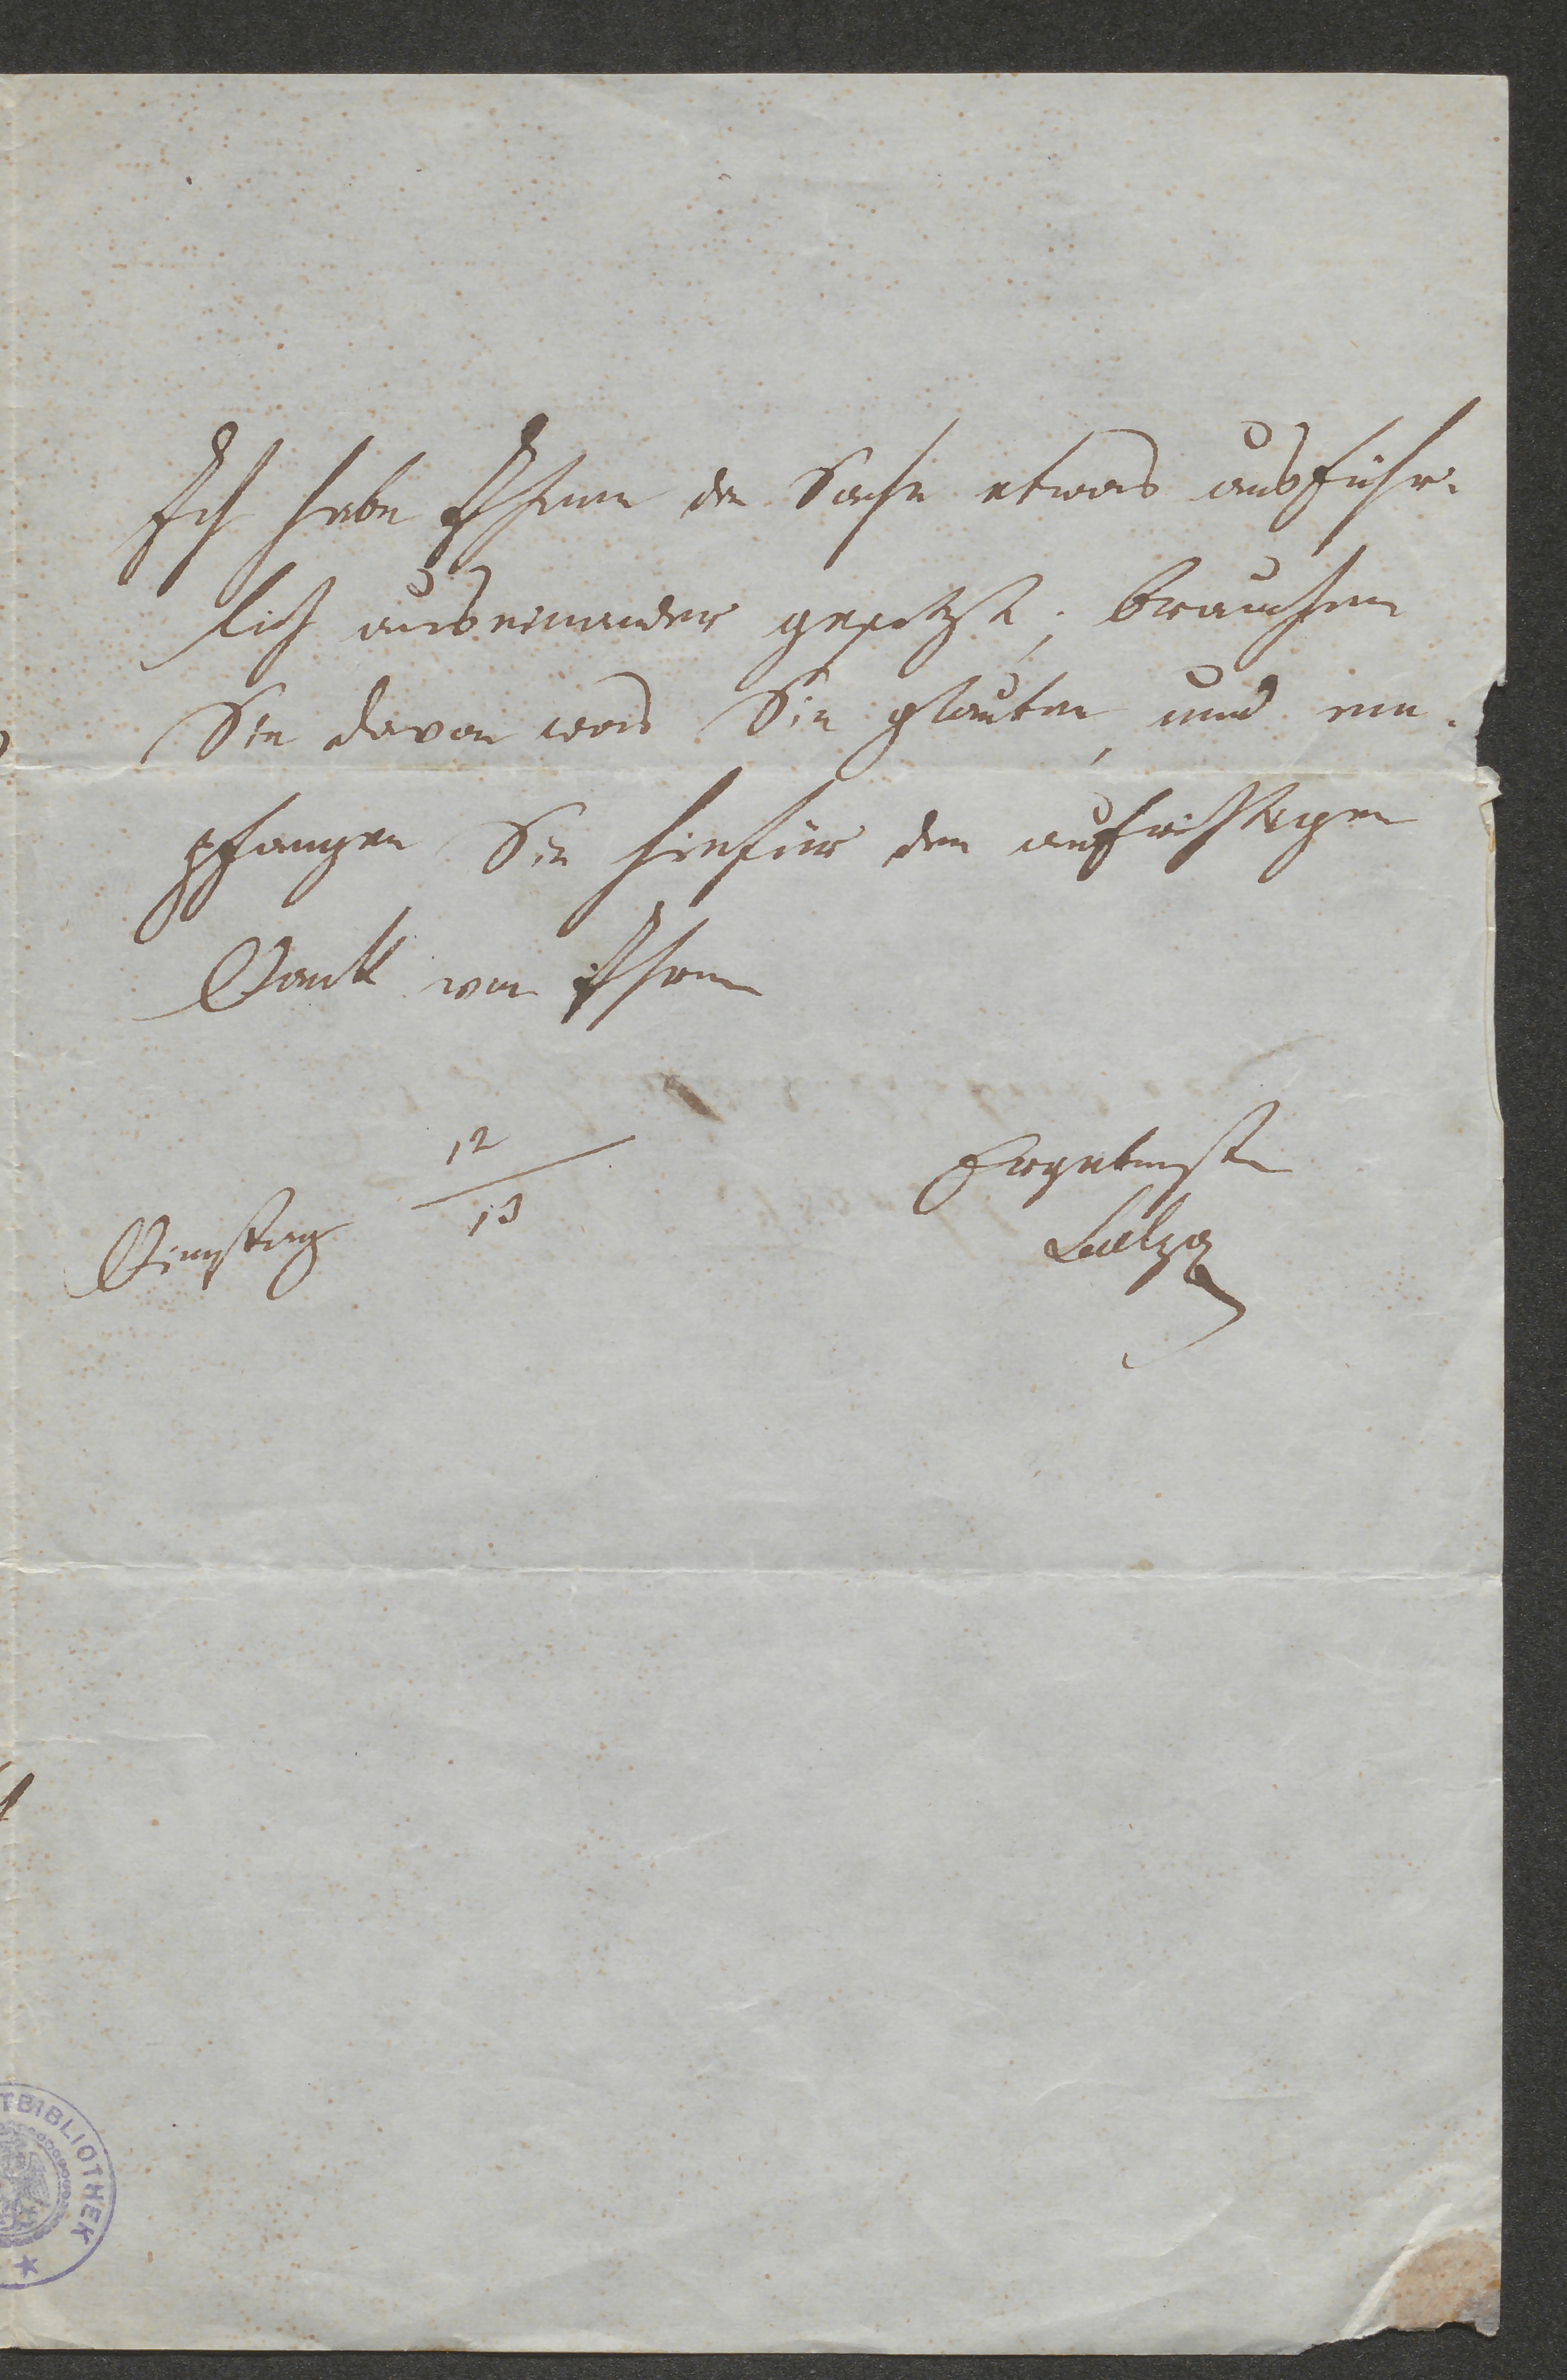 Ich habe Ihnen die Sache etwas ausführ-
lich auseinander gesetzt; brauchen
Sie davon was Sie glauben, und em-
pfangen Sie hiefür den aufrichtigen
Dank von Ihrem
12
13
Ergebensten
Dienstag
TBIBLIOTHEK